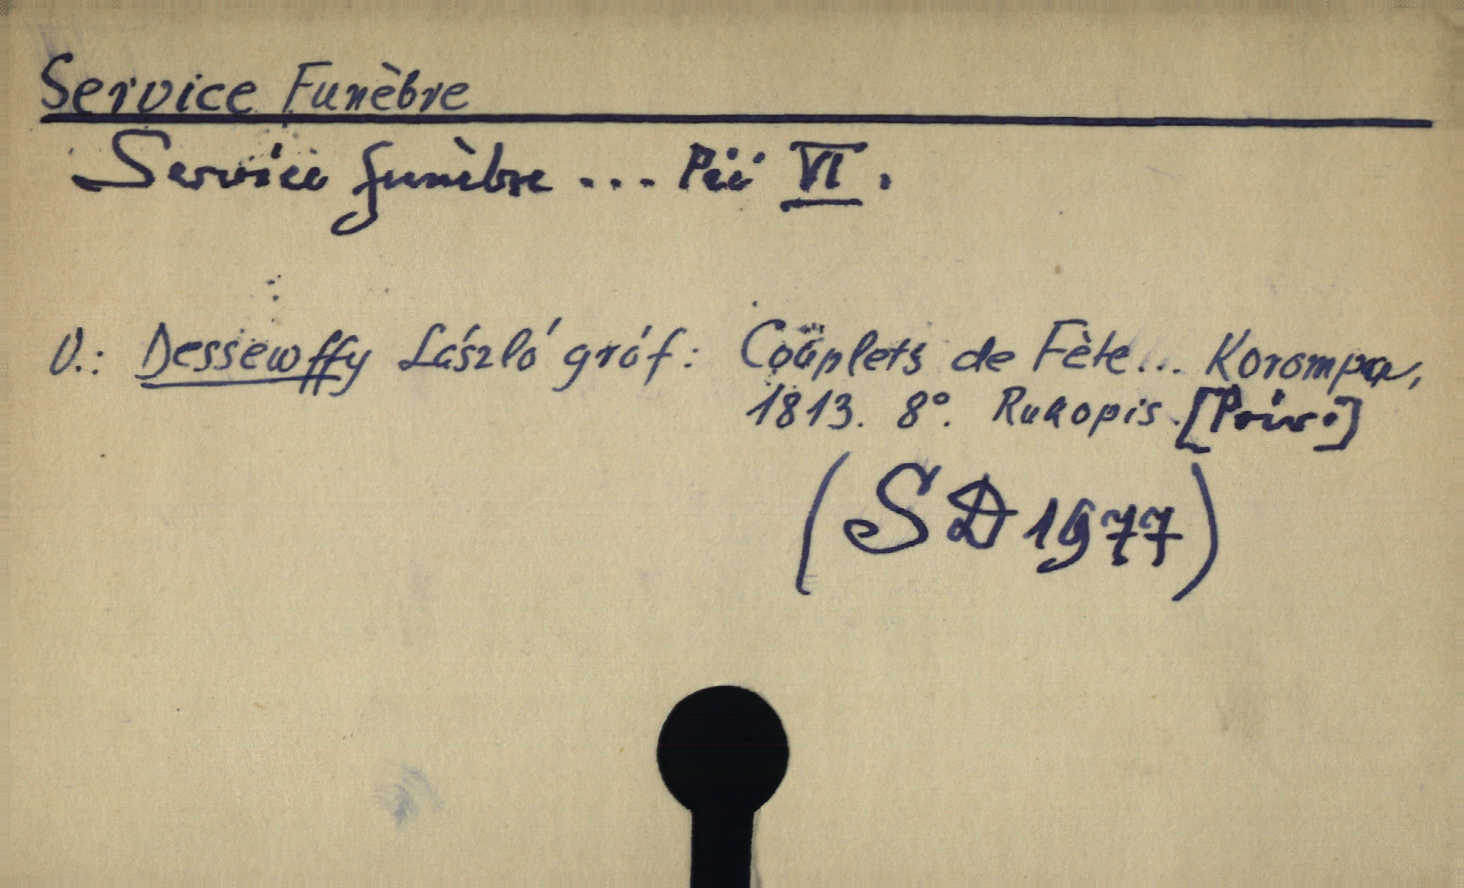 Service Funèbre
Service funèbre ... Pii VI.
V.: Dessewffy László gróf: Couplets de Fète... Korompa,
1813. 8°. Rukopis. [Priv.]
(SD 1977)